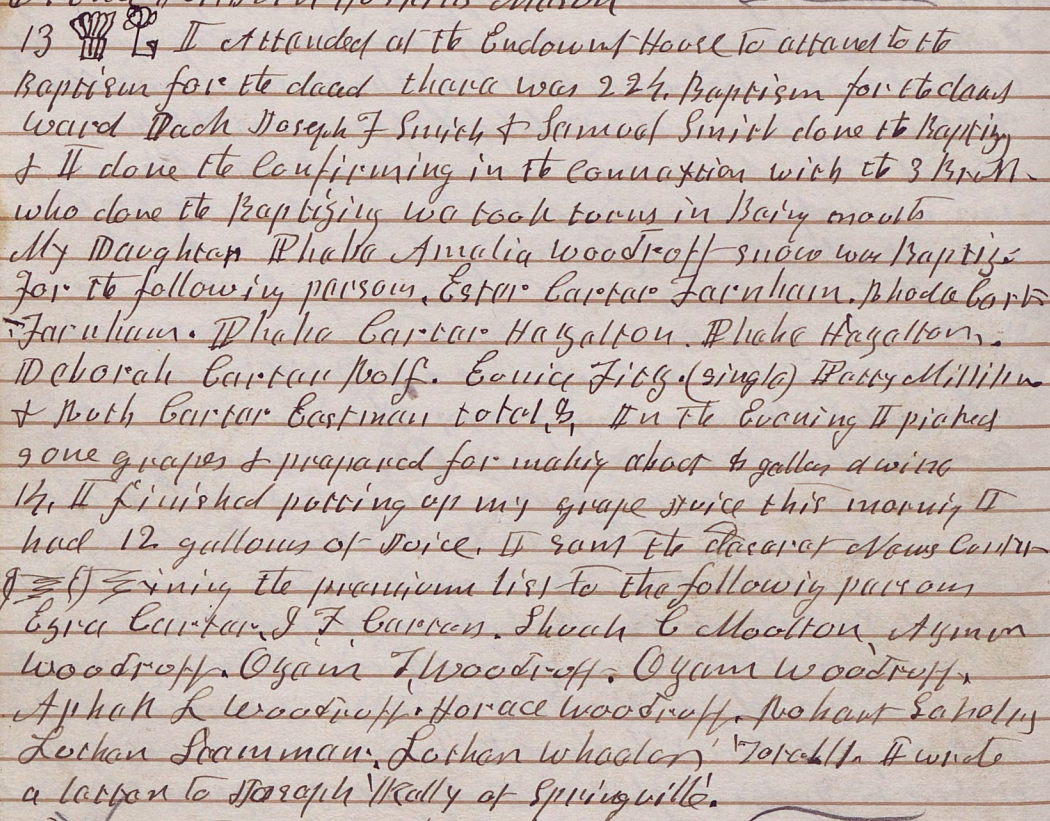 13 I Attended at the Endowmt House To attend to the
Baptism for the dead thare was 224. Baptism for the dead
ward Dack Joseph F Smith & Samuel Smith done the Baptiz
& I done the Confirming in the Connextion with the 3 Breth-
who done the Baptizing we took turns in Being mouth
My Daughter Phebe Amelia Woodruff Snow was Baptize
For the following persons, Ester Carter Farnham. Rhoda Cart-
-Farnham. Phebe Carter Hazelton. Phebe Hazelton.
Deborah Carter Rolf. Eunice Fitz. (single) Patty Milliken
& Ruth Carter Eastman total 8, In the Evening I picked
some grapes & prepared for making about 8 gallos of wine
14, I finished putting up my grape Juice this morning I
had 12 gallons of Juice. I sent the Deseret News Contin-
ining the premium list to the followig persons
Ezra Carter, I F Carter. Shuah C Moulton, Azmon
Woodruff. Ozem T, Woodruff. Ozem Woodruff,
Aphek L Woodruff. Horace Woodruff. Robert Scholes
Luther Scamman. Luther Wheeler, Total 11. I wrote
a letter to Joseph Kelly of Springville.